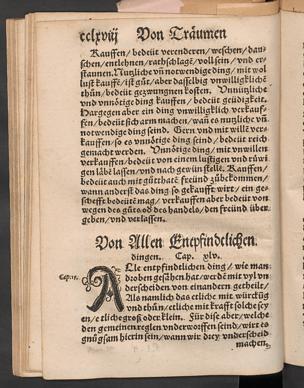 cclxviij Von Träumen
Kauffen / bedeüt verenderen / weschen / dau-
schen / entlehnen / rathschlagē / voll sein / vnd er-
staunen. Nutzliche vn̄ notwendige ding / mit wol
lust kauffē / ist gůt / aber dasselbig vnwilligklich
thůn / bedeüt gezwungnen kosten. Vnnützliche
vnd vnnötige ding kauffen / bedeüt geüdigkeit.
Hargegen aber ein ding vnwilligklich verkauf-
fen / bedeüt sich arm machen / wañ es nutzliche vn̄
notwendige ding seind. Gern vnd mit willē ver-
kauffen / so es vnnötige ding seind / bedeüt reich
gemacht werden. Vnnötige ding / mit vnwillen
verkauffen / bedeüt von einem lustigen vnd růwi
gen läbē lassen / vnd nach gewiñ stellē. Kauffen /
bedeüt auch mit gůtthatē freünd zůbekommen /
wann anderst das ding so gekaufft wirt / ein ge-
schefft bedeütē mag / verkauffen aber bedeüt von
wegen des gůts oð des handels / den freünd über
geben / vnd verlassen.
Von Allen Enepfindtlichen
dingen. Cap. xlv.
Alle entpfindtlichen ding / wie man
droben gesåhen hat / werdē mit vyl vn
derscheiden von einandern getheilt /
Als namlich das etliche mit würckūg
vnd thůn / etliche mit krafft solche sey
en / etliche groß oder klein. Für dise aber / welche
den gemeinen reglen vnderworffen seind / wirt es
gnůgsam hierin sein / wann wir drey vnderscheid
machen,